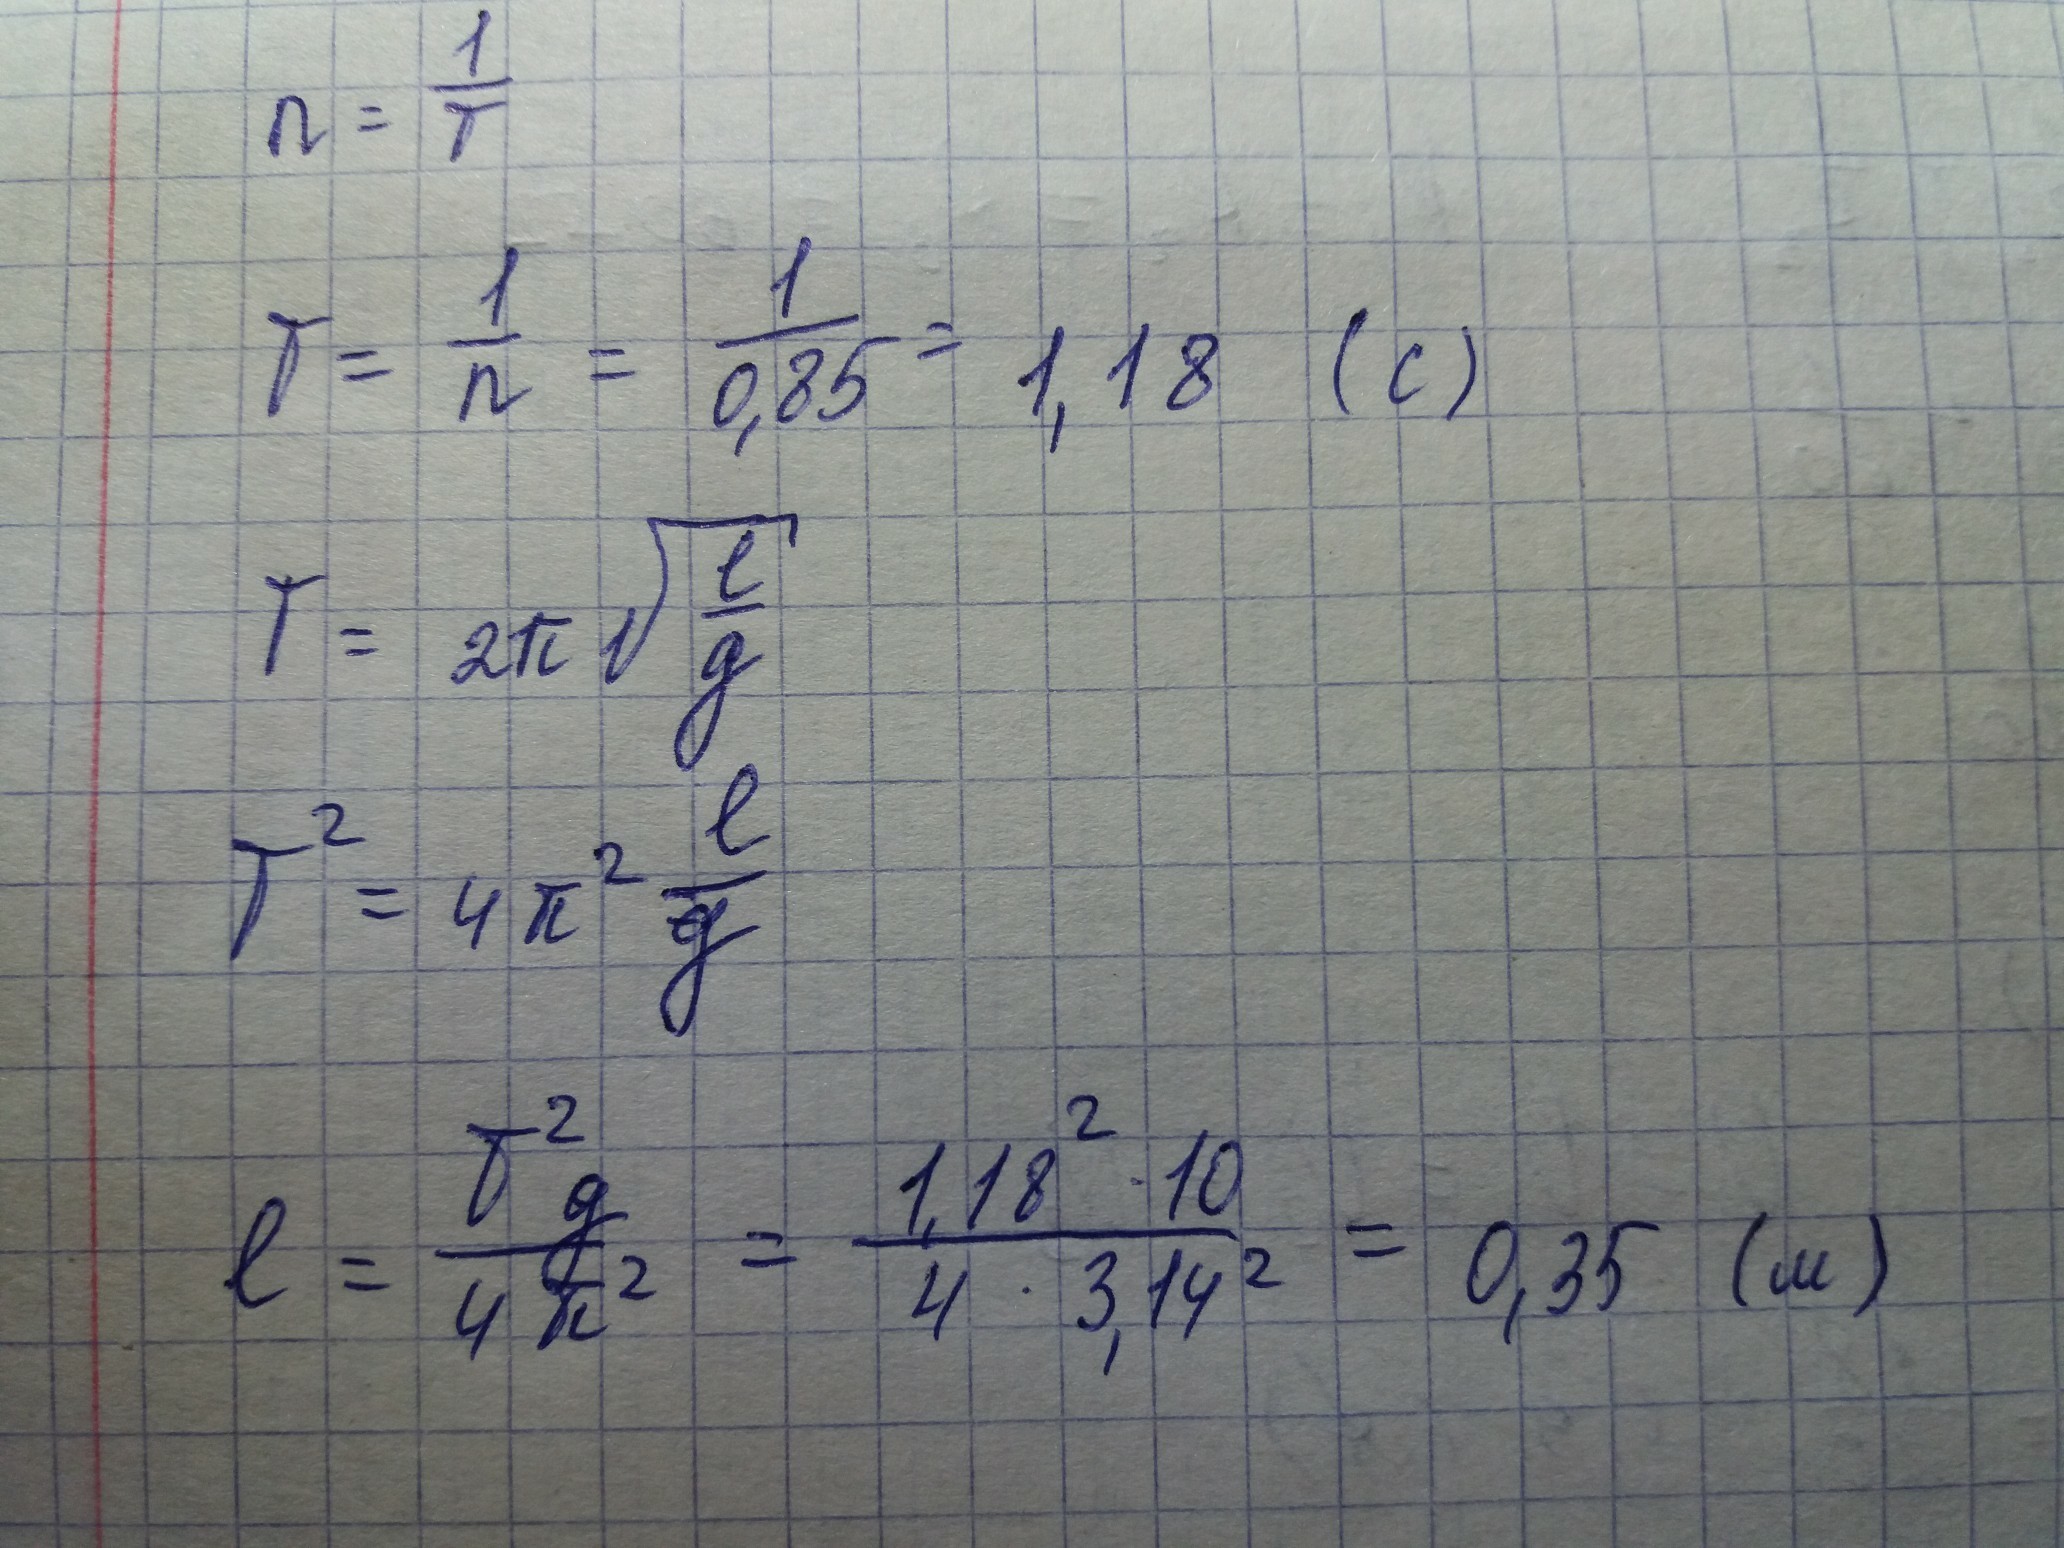 n = 1/T
T = 1/n = 1/0,85 = 1,18 (с)
T = 2π√(l/g)
T² = 4π² l/g
l = T²g/4π² = 1,18² · 10/4 · 3,14² = 0,35 (м)